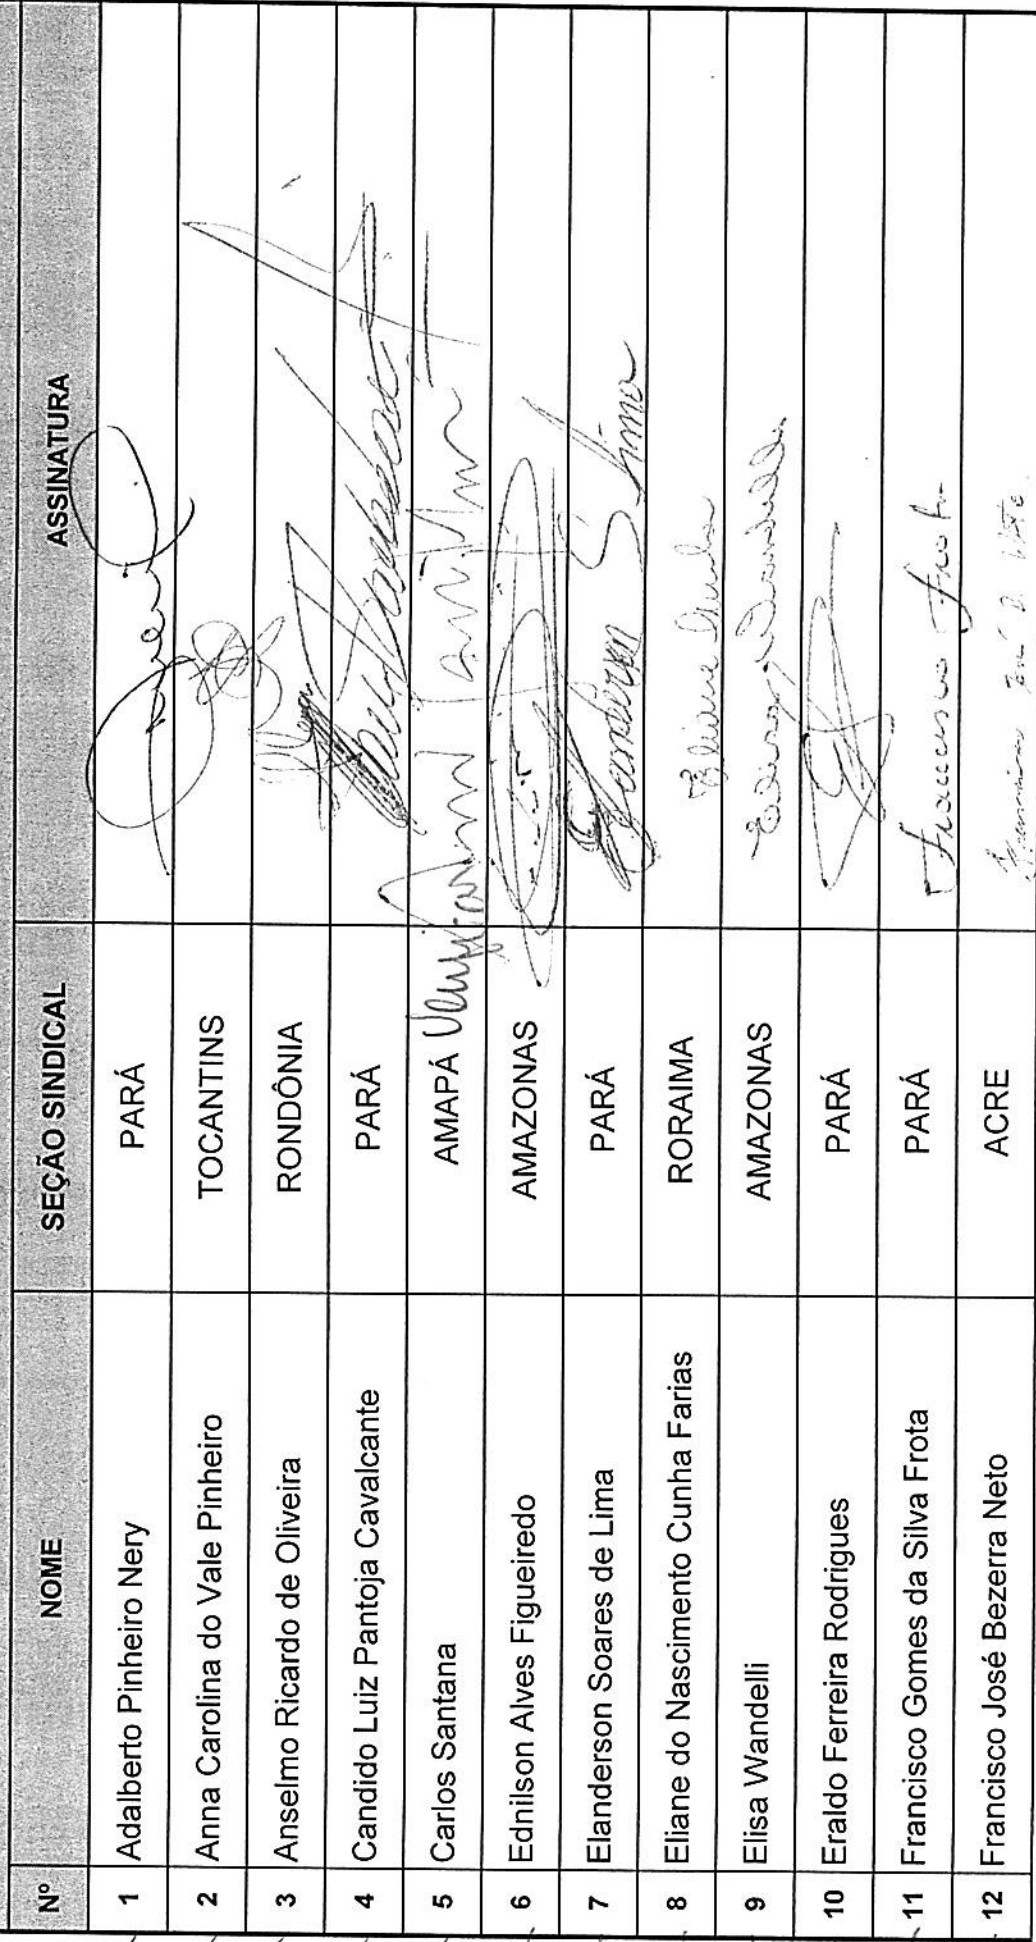 Nº NOME SEÇÃO SINDICAL ASSINATURA
1 Adalberto Pinheiro Nery PARÁ
2 Anna Carolina do Vale Pinheiro TOCANTINS
3 Anselmo Ricardo de Oliveira RONDÔNIA
4 Candido Luiz Pantoja Cavalcante PARÁ
5 Carlos Santana AMAPÁ
6 Ednilson Alves Figueiredo AMAZONAS
7 Elanderson Soares de Lima PARÁ Elanderson S Lima
8 Eliane do Nascimento Cunha Farias RORAIMA Eliane Cunha
9 Elisa Wandelli AMAZONAS Wandelli
10 Eraldo Ferreira Rodrigues PARÁ
11 Francisco Gomes da Silva Frota PARÁ Francisco Frota
12 Francisco José Bezerra Neto ACRE Francisco José B. Neto